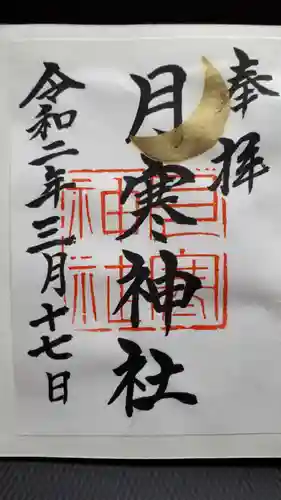 奉拝
月寒神社
月寒
神社
令和二年三月十七日